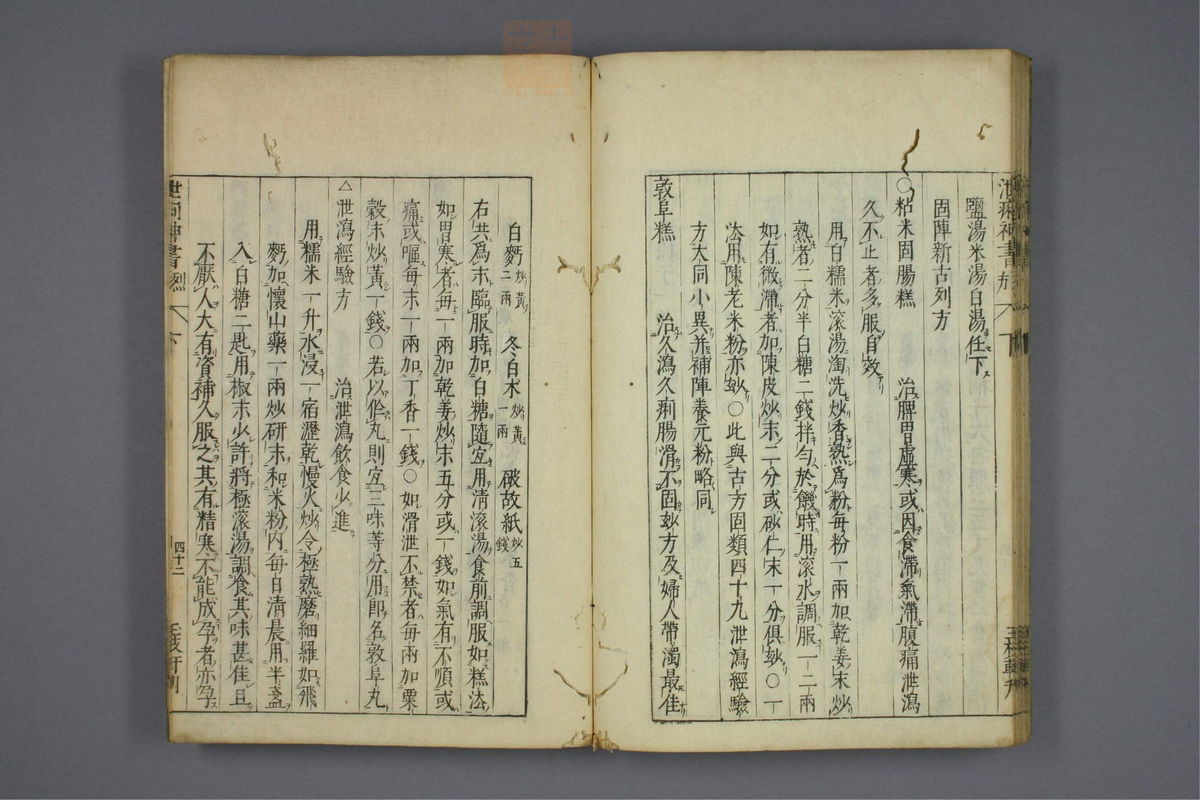 鹽湯米湯白湯任下
固陣新古列方
○粘米固腸糕　治脾胃虛寒或因食滯氣滯腹痛泄瀉
久不止者多服自效
用白糯米滾湯淘洗炒香熟爲粉每粉一兩加乾姜末炒
熟者二分半白糖二錢拌勻於饑時用滾水調服一二兩
如有微滯者加陳皮炒末二分或砂仁末一分俱玅○一
法用陳老米粉亦玅○此與古方固類四十九泄瀉經驗
方大同小異并補陣養元粉略同
敦阜糕　治久瀉久痢腸滑不固玅方及婦人帶濁最佳
白麪炒黃二兩　冬白朮炒黃一兩　破故紙炒五錢
右共爲末臨服時加白糖隨宜用淸滾湯食前調服如糕法
如胃寒者每一兩加乾姜炒末五分或一錢如氣有不順或
痛或嘔每末一兩加丁香一錢○如滑泄不禁者每兩加粟
穀末炒黃一錢○若以作丸則宜三味等分用即名敦阜丸
△泄瀉經驗方　治泄瀉飲食少進
用糯米一升水浸一宿瀝乾慢火炒令極熟磨細羅如飛
麪加懷山藥一兩炒研末和米粉內每日清晨用半盞
入白糖二匙用椒末少許將極滾湯調食其味甚佳且
不厭人大有資補久服之其有精寒不能成孕者亦孕
神書
四十二